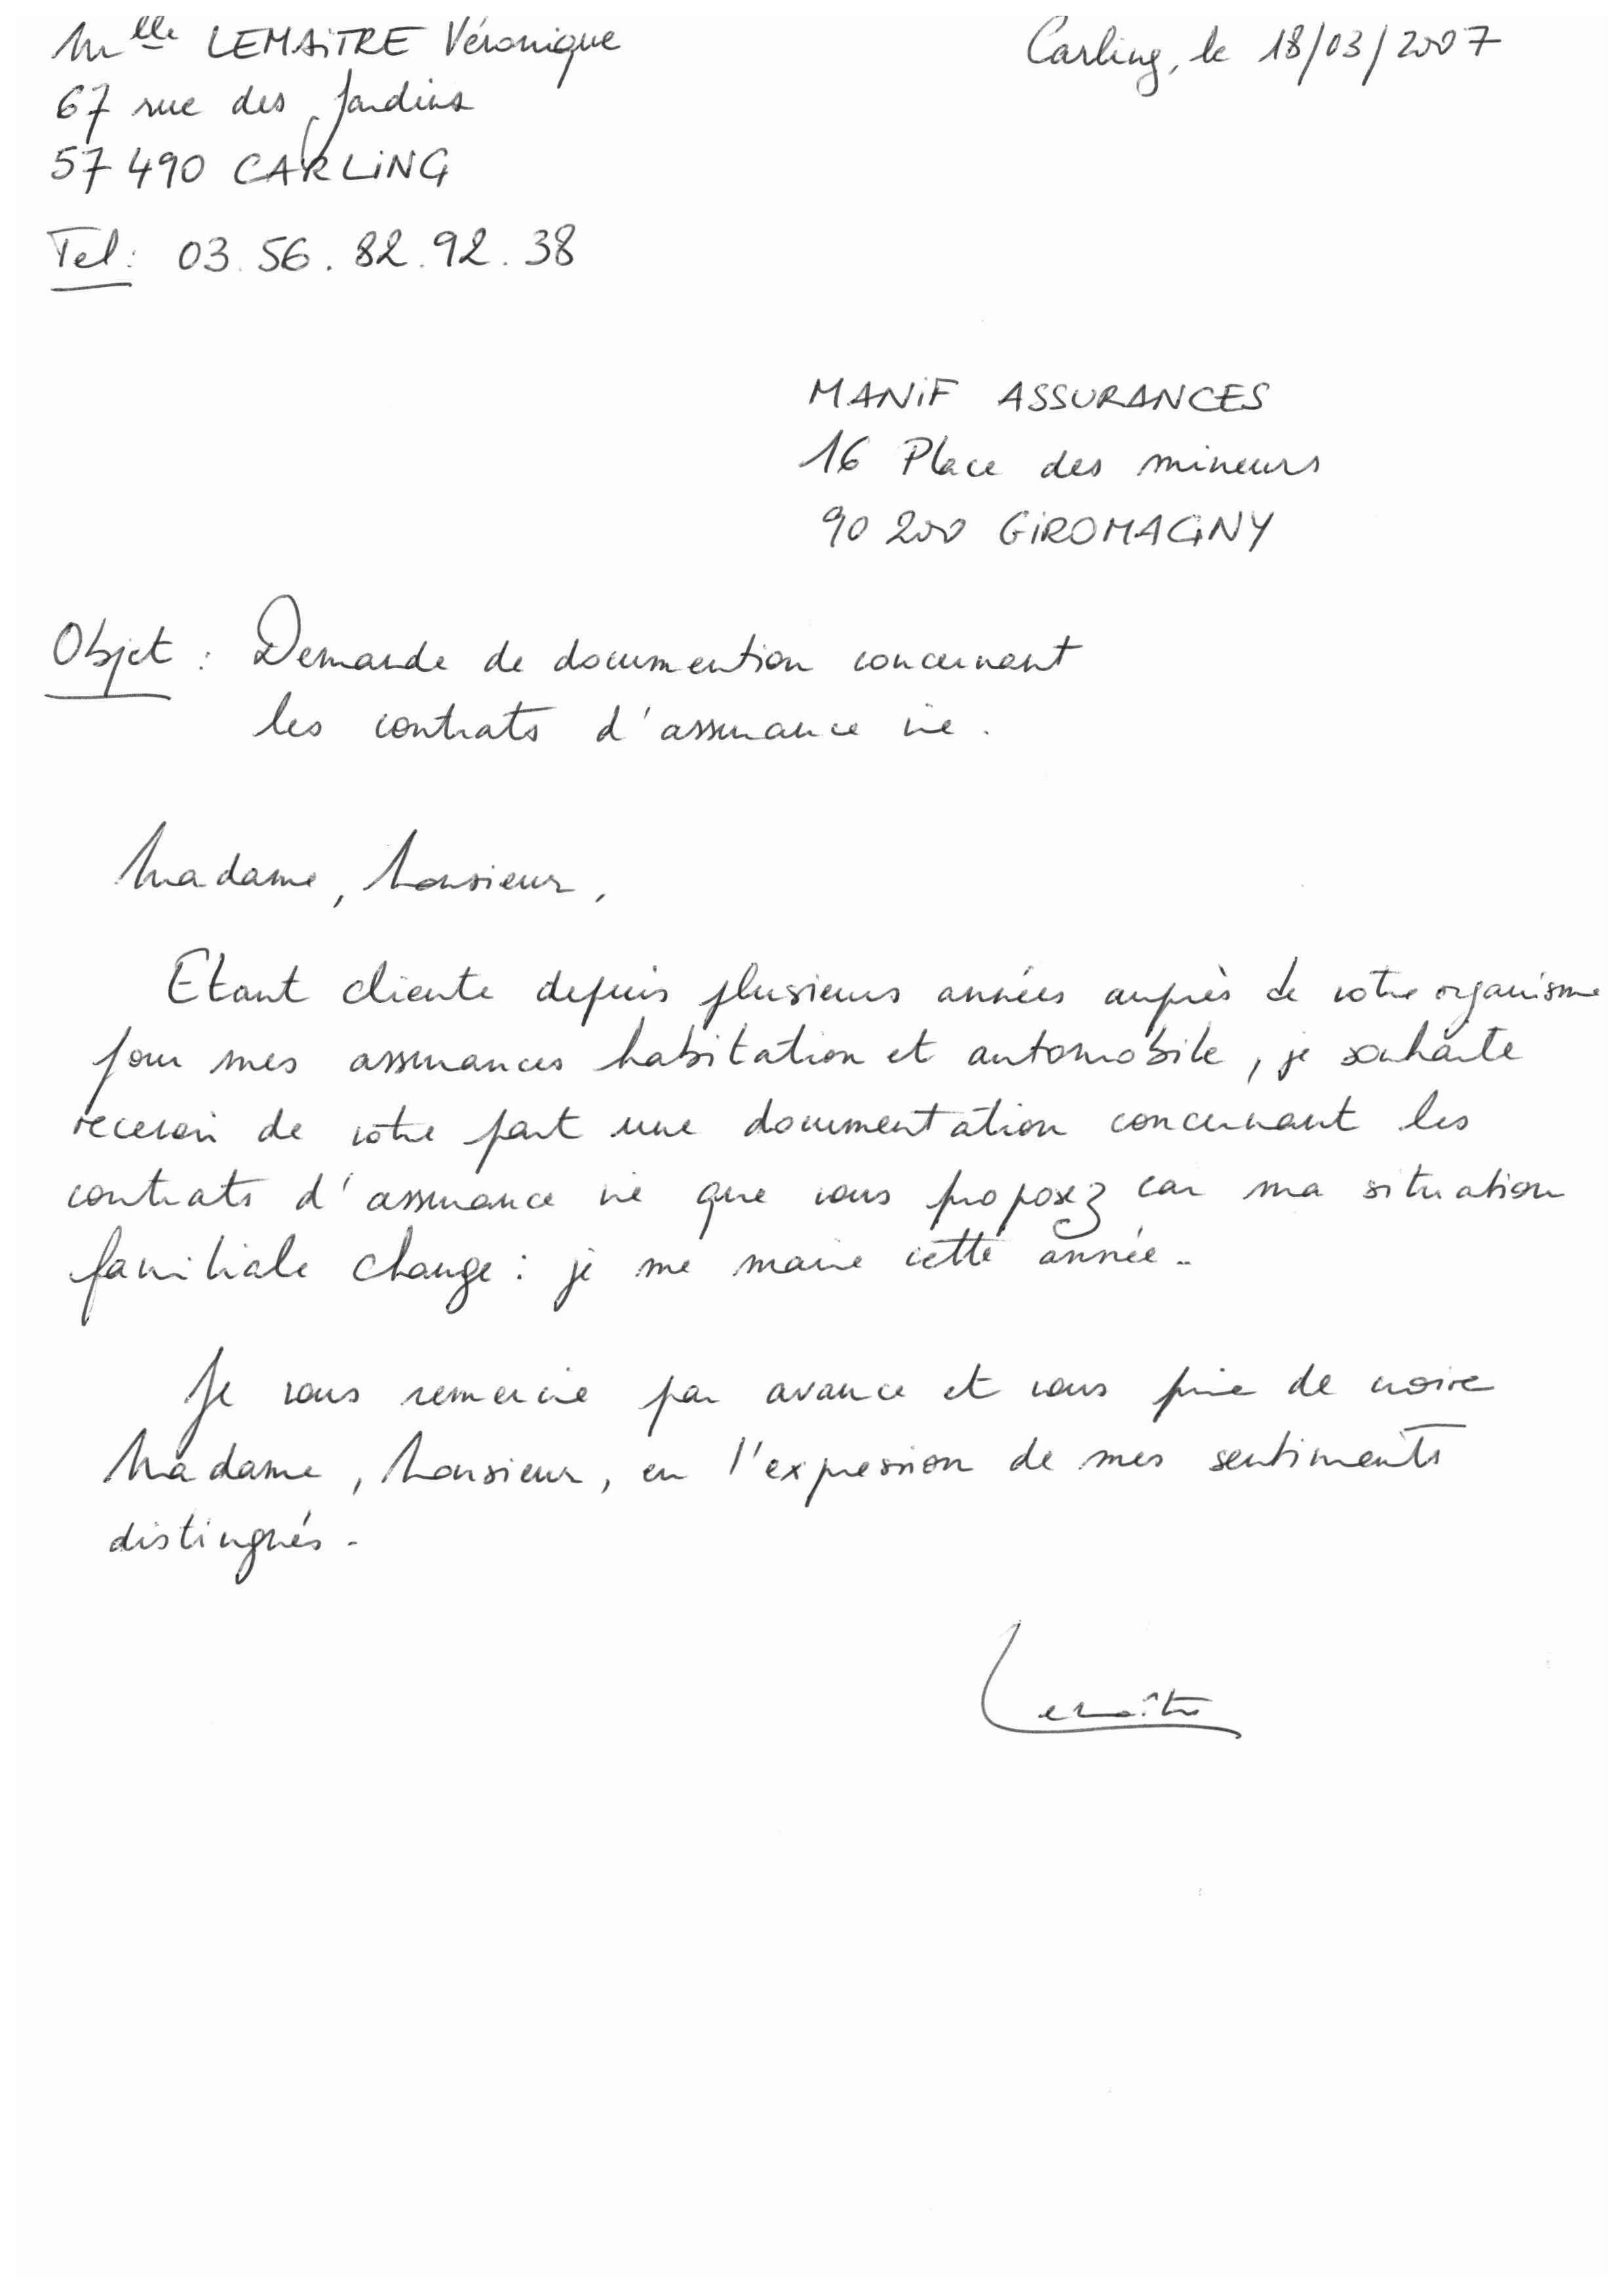 Mlle LEMAiTRE Véronique
Carling, le 18/03/2007
67 rue des Jardins
57 490 CARLiNG
Tel : 03.56.82.92.38
MANiF ASSURANCES
16 Place des mineurs
90 200 GiROMAGNY
Objet : Demande de documention concernant
les contrats d'assurance vie.
Madame, Monsieur,
Etant cliente depuis plusieurs années auprès de votre organisme
pour mes assurances habitation et automobile, je souhaite
recevoir de votre part une documentation concernant les
contrats d'assurance vie que vous proposez car ma situation
familiale change : je me marie cette année..
Je vous remercie par avance et vous prie de croire
Madame, Monsieur, en l'expression de mes sentiments
distingués.
Lemaître